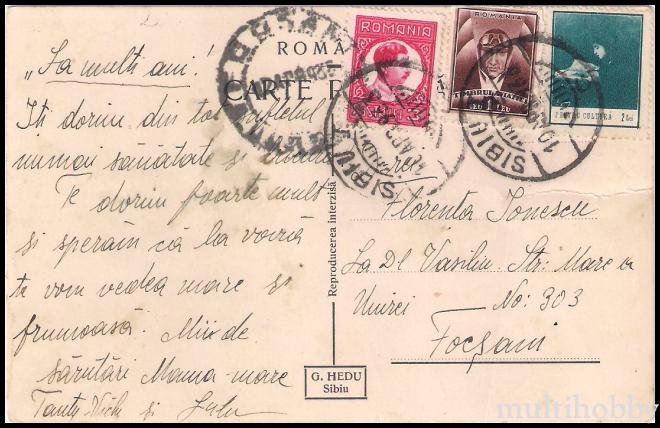 ROMÂNIA
CARTE
„La mulți ani!"
Iți dorim din tot sufletul
numai sănătate și
Te dorim foarte mult
și sperăm că la vară
te vom vedea mare și
frumoasă. Mii de
sărutări Mama-mare
Tanty și Lulu
Reproducerea interzisă
G. HEDU
Sibiu
ROMANIA
ROMANIA
TIMBRUL AVIAȚIEI
1 LEU
PENTRU CULTURĂ 2 lei
SIBIU
SIBIU
Florența Ionescu
La Dl Vasiliu. Str: Mare a
Unirei No: 303
Focșani
multihobby